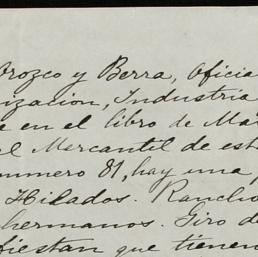 Orozco y Berra, Oficia
ización, Industria
e en el libro de Ma
al Mercantil de est
numero 81, hay una
Hilados. Rancho
hermanos. Giro d
fiestan que tienen